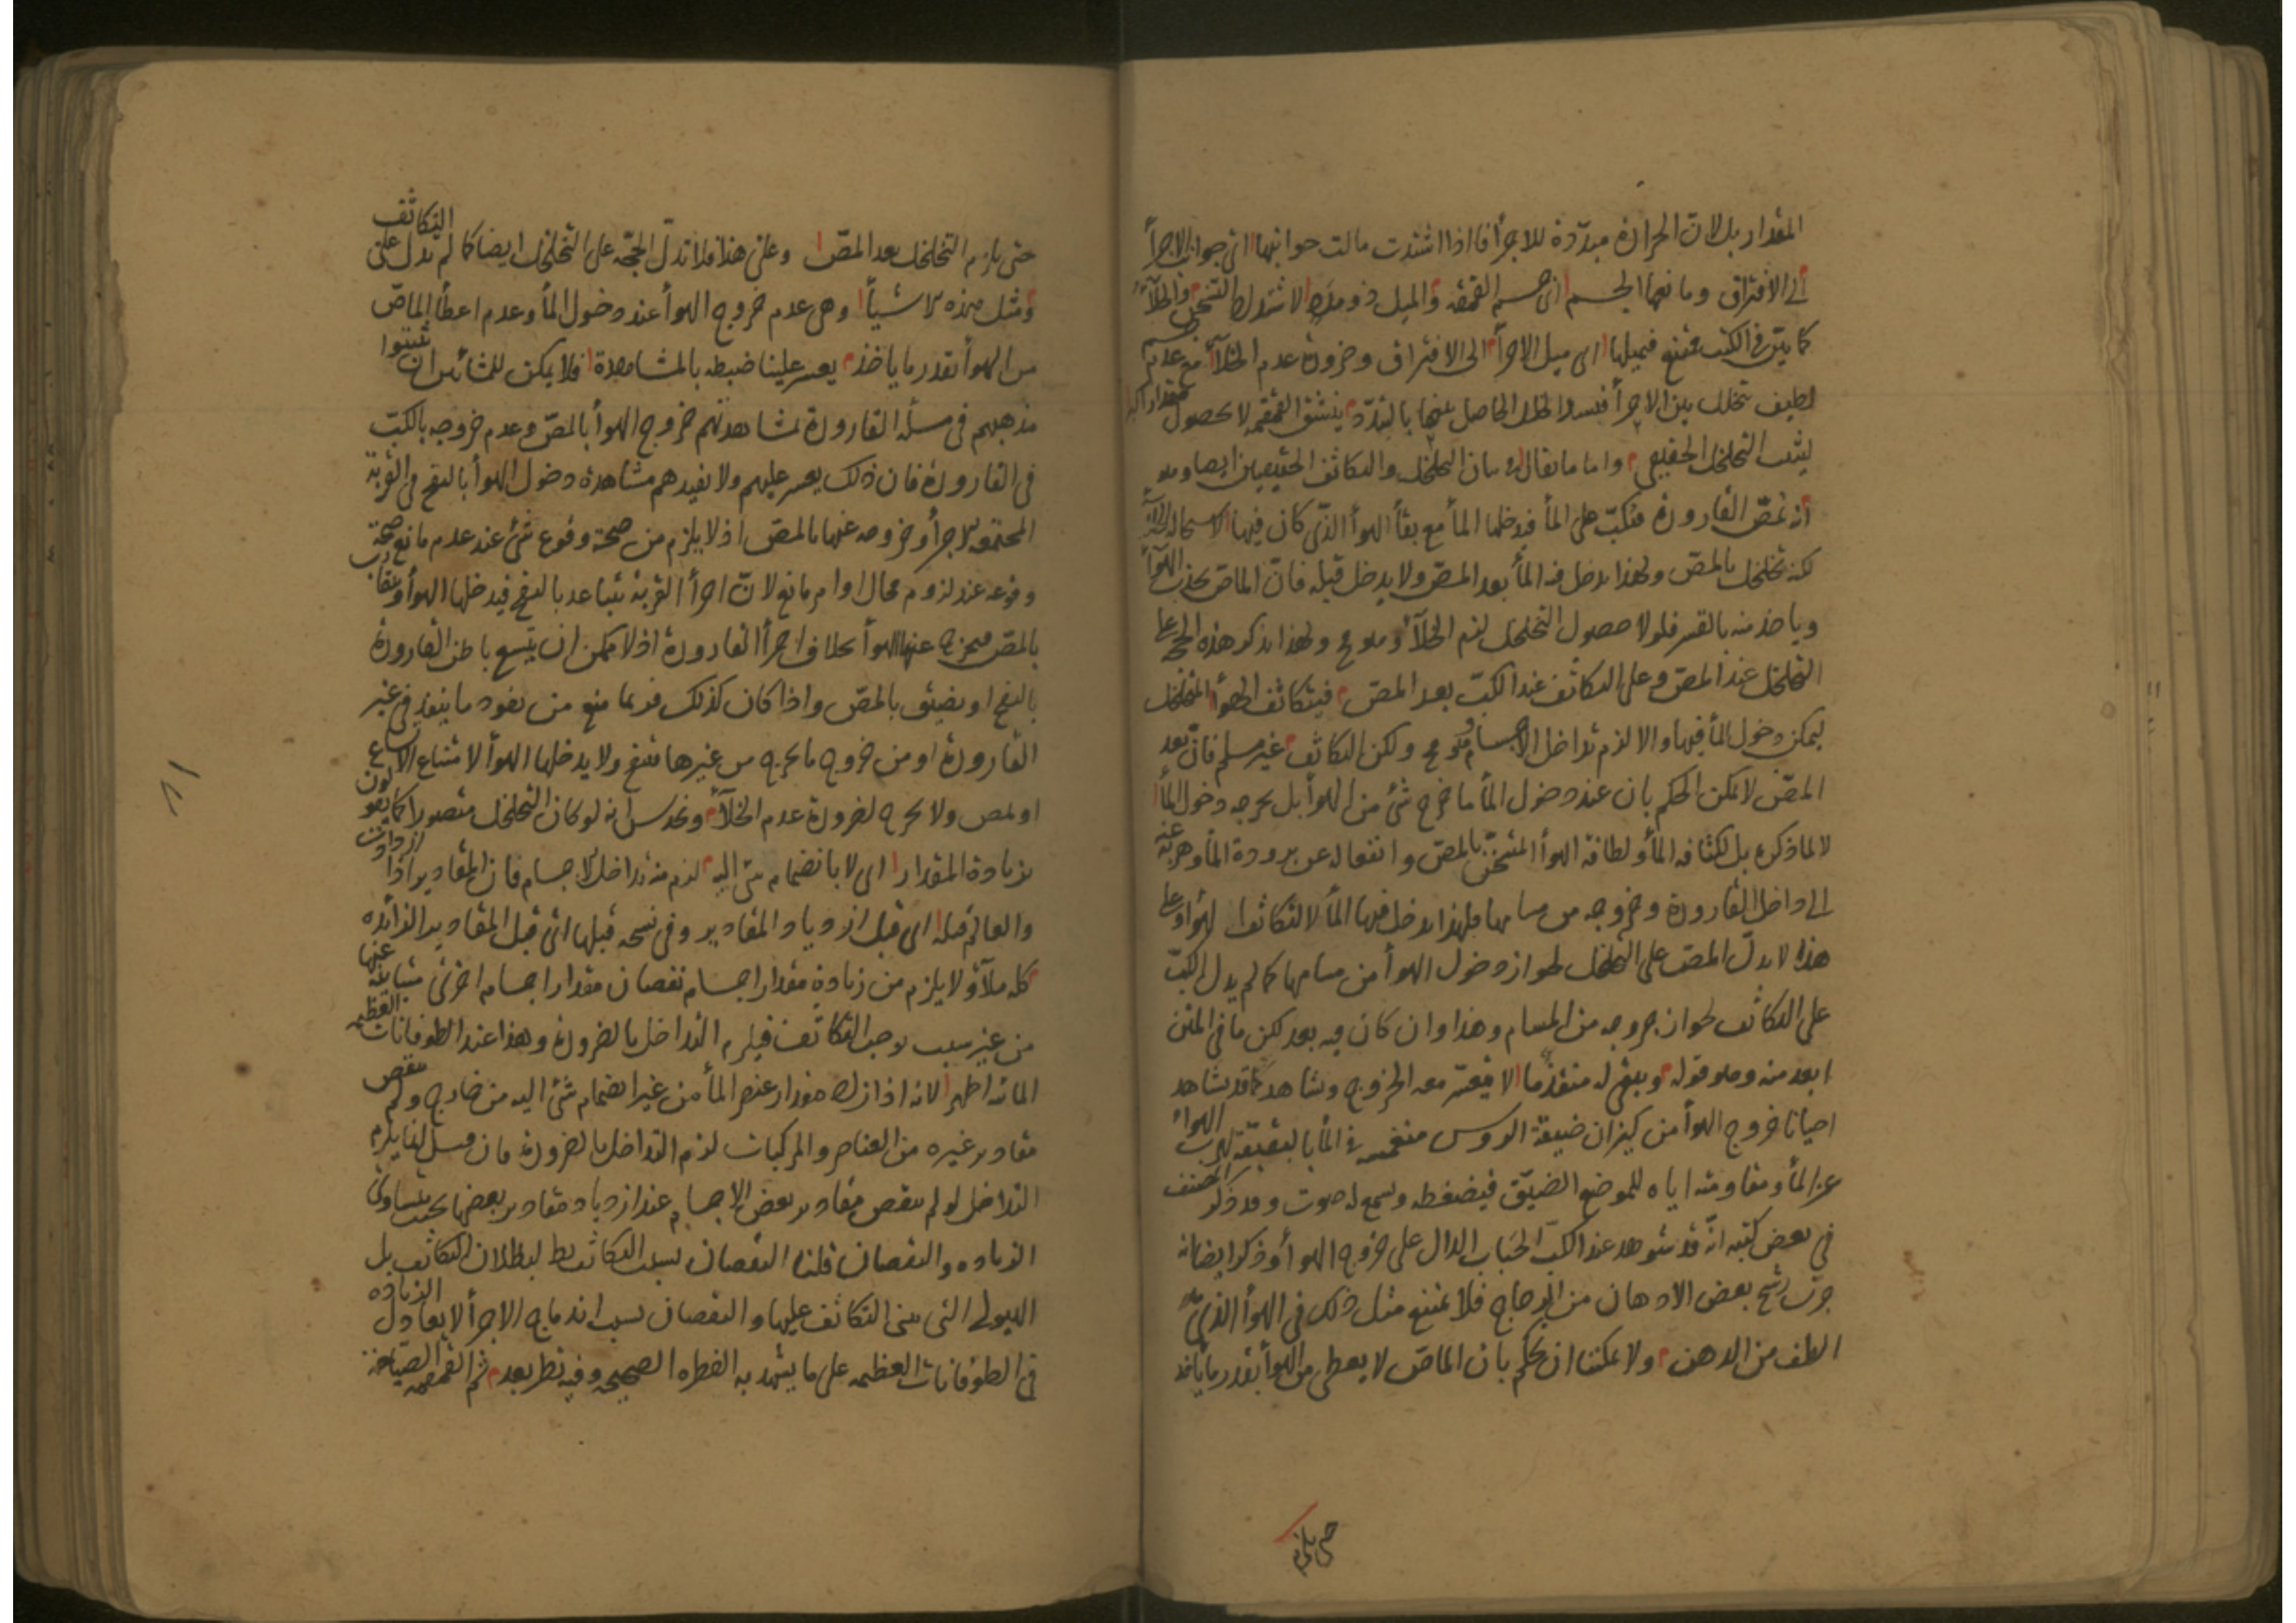 المقدار بل لان الحرارة مبدّدة للاجزأ فاذا اشتدت مالت جوانبها اى جوانب الاجزأ
الى الافتراق ومانعها الجسم اى جسم القمقمة والميل ذو مدد لاشتداد التسخن والخلأ
كما بيّن فى الكتب ممتنع فميلها اى ميل الاجزأ الى الافتراق وضرورة عدم الخلأ مع عدم جسم
لطيف يتخلل بين الاجزأ فيسد الخلل الحاصل بينها بالتبدّد ينشق القمقمة لا لحصول مقدار اكبر
ليثبت التخلخل الحقيقى واما ما يقال فى بيان التخلخل والتكاثف الحقيقيين ايضا وهو
انه تمصّ القارورة فتكبّ على المأ فيدخلها المأ مع بقأ الهوأ الذى كان فيها لاستحالة الخلأ
لكنه تخلخل بالمصّ ولهذا يدخل فيه المأ بعد المصّ ولا يدخل قبله فانّ الماصّ يجذب الهوأ
وياخذ منه بالقسر فلولا حصول التخلخل لزم الخلأ وهو مح ولهذا يذكر هذه الحجة على
التخلخل عند المصّ وعلى التكاثف عند الكبّ بعد المصّ فيتكاثف الهوأ المتخلخل
ليمكن دخول المأ فيها والا لزم تداخل الاجسام وهو مح ولكن التكاثف غير مسلم فانّ بعد
المصّ لا يمكن الحكم بان عند دخول المأ ما خرج شئ من الهوأ بل يخرجه دخول المأ
لا لما ذكره بل لكثافة المأ ولطافة الهوأ المتسخن بالمصّ وانفعاله عن برودة المأ وهربه عنه
الى داخل القارورة وخروجه من مسامها فلهذا يدخل فيها المأ لا لتكاثف الهوأ وعلى
هذا لا يدلّ المصّ على التخلخل لجواز دخول الهوأ من مسامها كما لم يدل الكبّ
على التكاثف لجواز خروجه من المسام وهذا وان كان فيه بعد لكن ما فى المتن
ابعد منه وهو قوله ويبقى له منفذ ما لا يتعسّر معه الخروج ويشاهد كما قد يشاهد
احيانا خروج الهوأ من كيزان ضيقة الروس منغمسة فى المأ بالبقبقة لهرب الهواء
عن المأ ومقاومته اياه للموضع الضيّق فيضغطه ويسمع له صوت وقد ذكر المصنف
فى بعض كتبه انّه قد شوهد عند الكبّ الحباب الدال على خروج الهوأ وذكر ايضا انه
جرّب رشح بعض الادهان من الزجاج فلا يمتنع مثل ذلك فى الهوأ الذى هو
الطف من الدهن ولا يمكننا ان نحكم بان الماصّ لا يعطى من الهوأ بقدر ما ياخذ
حتى يلزم
حتى يلزم التخلخل بعد المصّ وعلى هذا فلا تدلّ الحجّة على التخلخل ايضا كما لم تدل على التكاثف
ومثل هذه الاشيأ وهى عدم خروج الهوأ عند دخول المأ وعدم اعطأ الماصّ
من الهوأ بقدر ما ياخذ يعسر علينا ضبطه بالمشاهدة فلا يمكن للمشائين ان يثبتوا
مذهبهم فى مسئلة القارورة لمشاهدتهم خروج الهوأ بالمصّ وعدم خروجه بالكبّ
فى القارورة فان ذلك يعسر عليهم ولا يفيدهم مشاهدة دخول الهوأ بالنفخ فى القربة
المجتمعة الاجزأ وخروجه عنها بالمصّ اذ لا يلزم من صحة وقوع شئ عند عدم مانع صحّة
وقوعه عند لزوم محال او امر مانع لانّ اجزأ القربة يتباعد بالنفخ فيدخلها الهوأ ويتقارب
بالمصّ فيخرج عنها الهوأ بخلاف اجزأ القارورة اذ لا يمكن ان يتّسع باطن القارورة
بالنفخ او يضيق بالمصّ واذا كان كذلك فربما منع من نفود ما ينفذ فى غير
القارورة او من خروج ما يخرج من غيرها فتنفخ ولا يدخلها الهوأ لامتناع الاتساع
او تمص ولا يخرج لضرورة عدم الخلأ وتحدس انه لو كان التخلخل متصورا كما يقولون
بزيادة المقدار اى لا بانضمام شئ اليه لزم منه تداخل الاجسام فان المقادير اذا ازدادت
والعالم قبله اى قبل ازدياد المقادير وفى نسخه قبلها اى قبل المقادير الزائده
كله ملأ ولا يلزم من زيادة مقدار اجسام نقصان مقدار اجسام اخرى متباينة عنها
من غير سبب يوجب التكاثف فيلزم التداخل بالضرورة وهذا عند الطوفانات العظيمه
المائيه اظهر لانه اذا زاد مقدار عنصر المأ من غير انضمام شئ اليه من خارج ولم ينقص
مقادير غيره من العناصر والمركبات لزم التداخل بالضرورة فان قيل انما يلزم
التداخل لو لم ينقص مقادير بعض الاجسام عند ازدياد مقادير بعضها بحيث يتساوى
الزياده والنقصان قلنا النقصان بسبب التكاثف بط لبطلان التكاثف بل
الهيولى التى يبنى التكاثف عليها والنقصان بسبب اندماج الاجزأ لا يعادل الزياده
فى الطوفانات العظيمه على ما يشهد به الفطره الصحيحه وفيه نظر بعد ثم القمقمه الصيّاحة